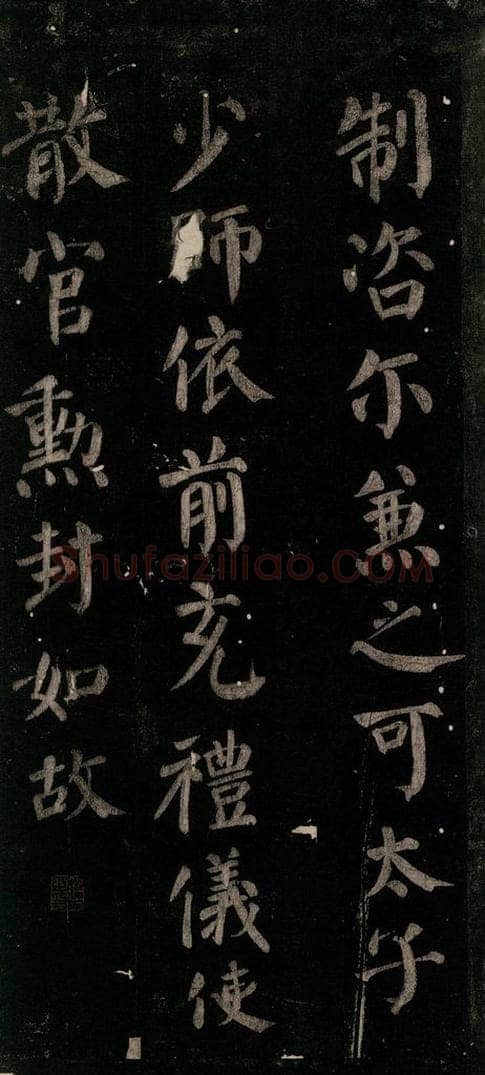 制咨尔兼之可太子
少師依前充禮儀使
散官勲封如故
Shufaziliao.COM